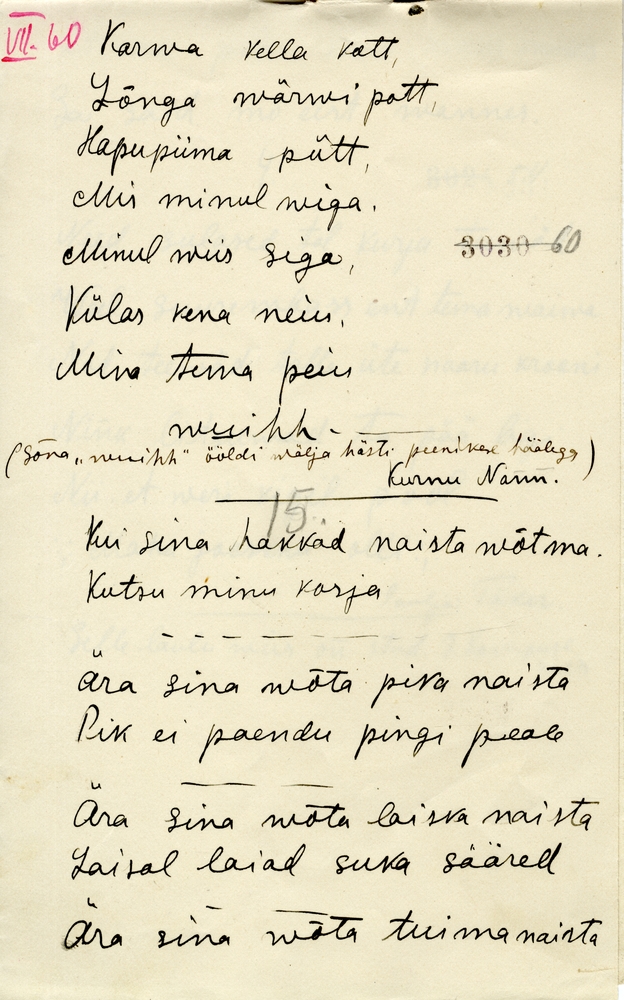 VII. 60
Karwa kella kott,
Lõnga wärwi pott,
Hapupiima pütt,
Mis minul wiga.
Minul wiis siga,
3030 60
Külas kena neiu,
Mina tema peiu
wuihh -
(Sõna „wuihh" ööldi wälja hästi peenikese häälega)
Kurnu Nann.
15.
Kui sina hakkad naista wõtma.
Kutsu minu kosja
Ära sina wõta pika naista
Pik ei paendu pingi peale
Ära sina wõta laiska naista
Laisal laiad suka sääred
Ära sina wõta tuima naista